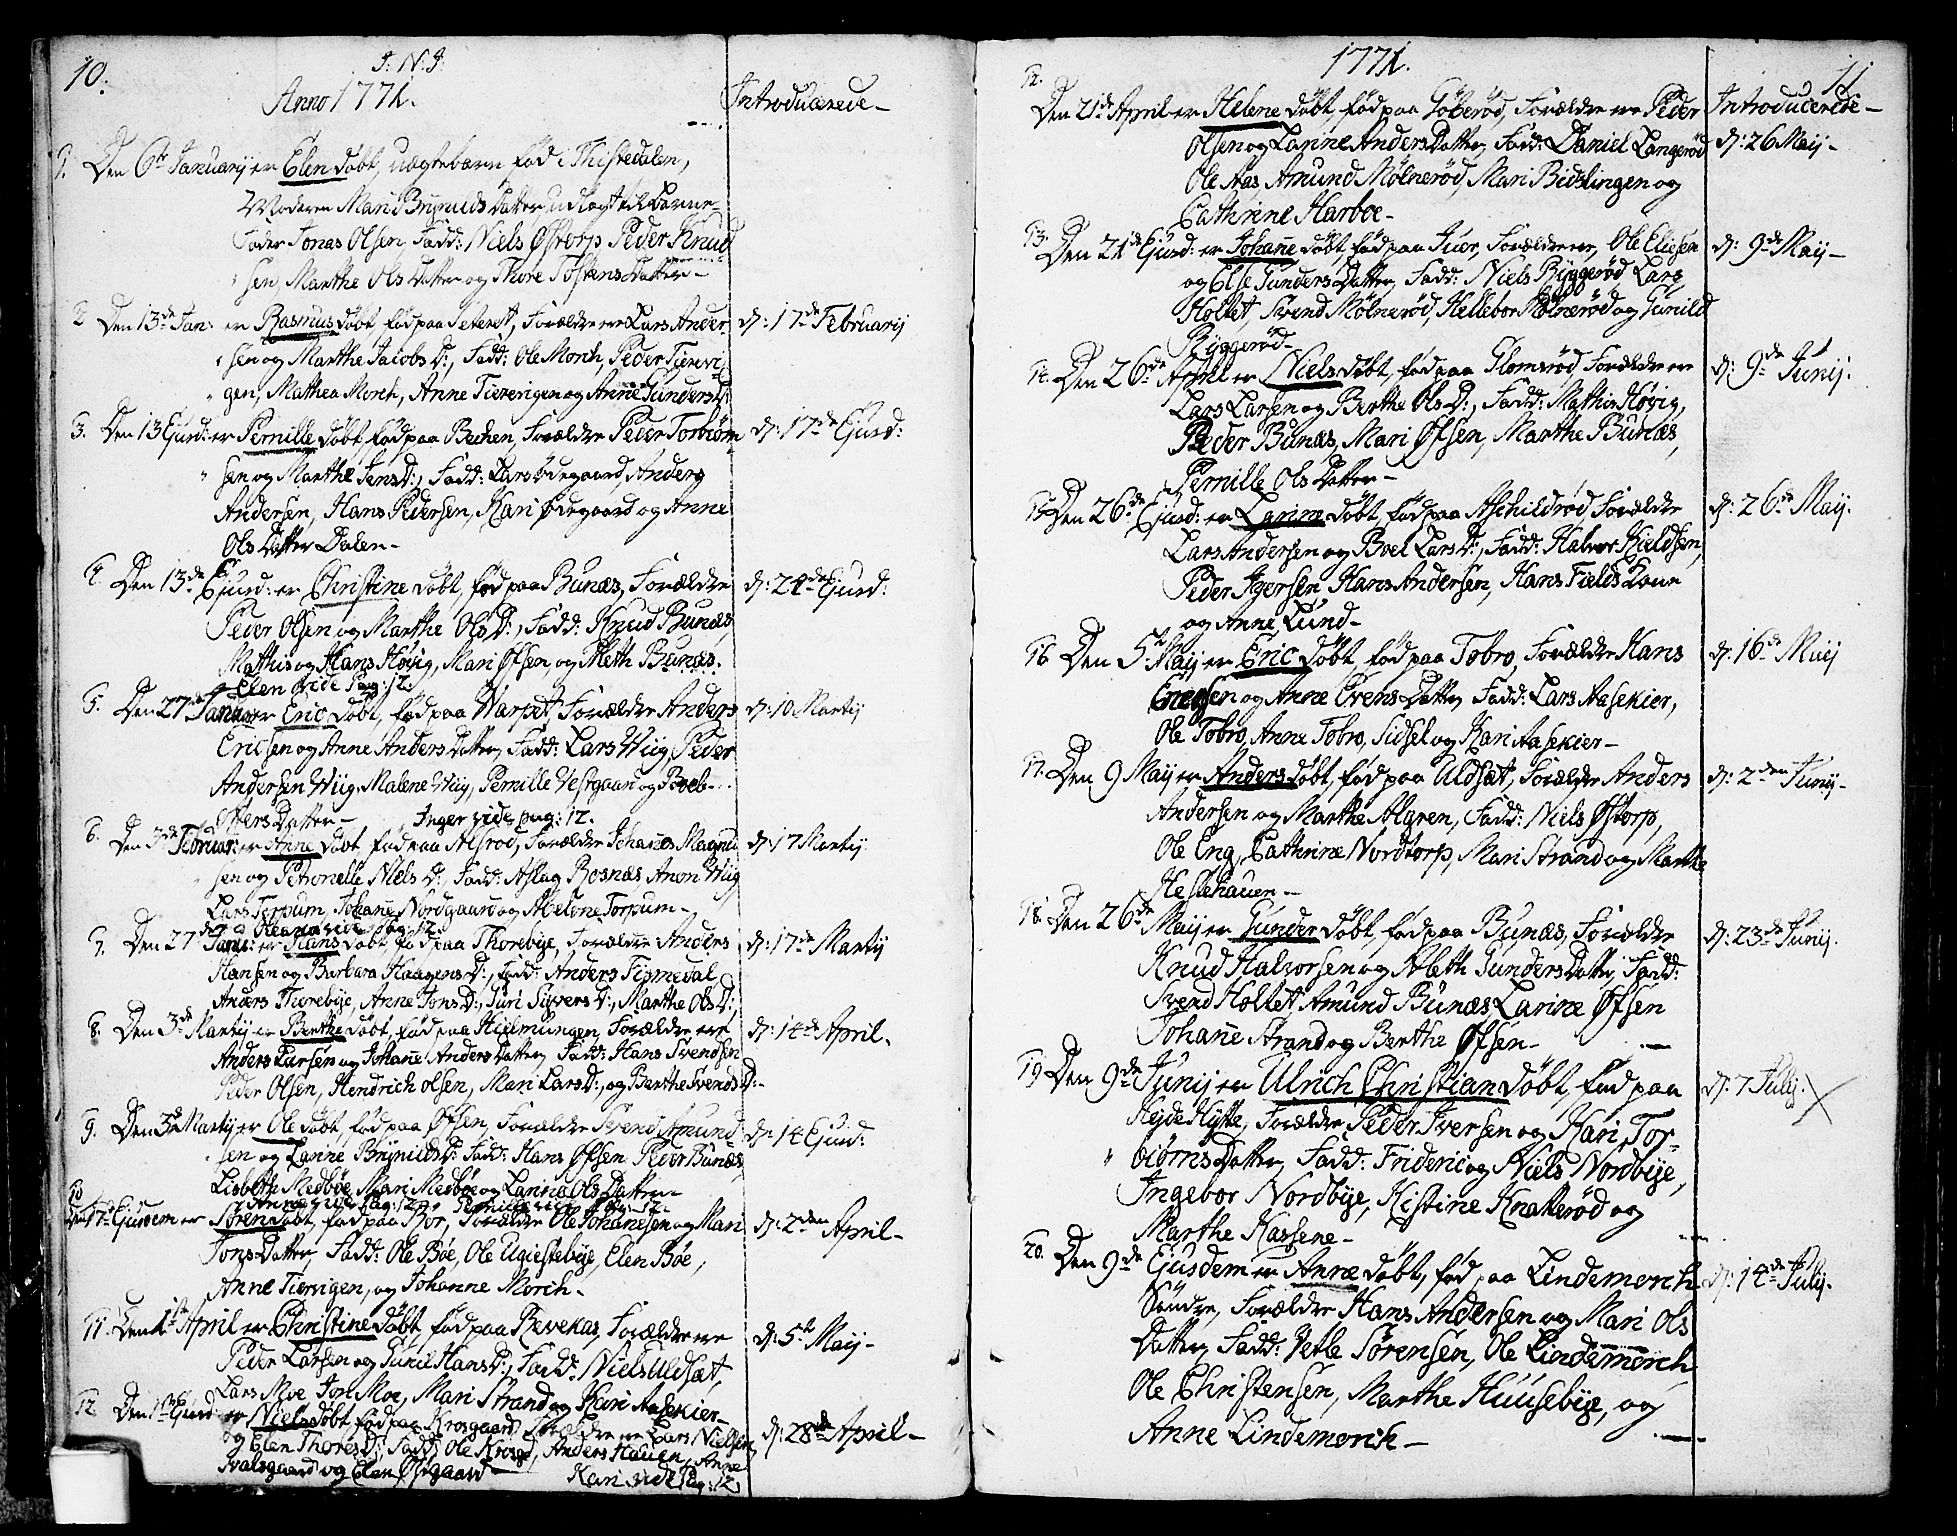 10.
J: N: J:
Anno 1771.
Introducerede-
1. Den 6te Januarij er Elen döbt, uægtebarn fød i Thistedalen,
Moderen Mari Brynilds Datter, udlagt til Barne-
Fader Jonas Olsen, Fadd: Niels Østorp Peder Knud
sen, Marthe Ols Datter og Thore Tostens Datter-
2 Den 13de Jan: er Rasmus döbt, fød paa Seteret, Forældre ere Lars Ander
sen og Marthe Jacobs D:, Fadd: Ole Morch, Peder Tierevi-
gen, Mathea Morch, Anne Tierevigen og Anne Gunders D:
d: 17de Februarij
3. Den 13 Ejusd: er Pernille döbt, fød paa Bechen, Forældre Peder Torbiörn
sen og Marthe Jens D:, Fadd: Lars Ödegaard, Anders
Andersen, Hans Pedersen, Kari Ödegaard og Anne
Ols Datter Dalen-
d: 17de Ejusd:
4. Den 13de Ejusd: er Christine döbt, fød paa Bunæs, Forældre
Peder Olsen og Marthe Ols D:, Fadd: Knud Bunæs,
Mathis og Hans Høvig, Mari Øfsen, og Aleth Bunæs.
d: 24de Ejusd:
Elen vide Pag: 12.
5. Den 27de Januar er Eric döbt, fød paa Warpet, Forældre Anders
Ericsen og Anne Anders Datter, Fadd: Lars Wiig, Peder
Andersen Wiig, Malene Wiig, Pernille Vestgaard og Boel
Ofters Datter-
d: 10 Martij
Inger vide pag: 12.
6. Den 3de Februar: er Anne döbt fød paa Alsrød, Forældre Johanes Magnu
sen og Petronelle Niels D:, Fadd: Aslag Rosnæs, Anon Wiig
Lars Torpum, Johane Nordgaard og Abelone Torpum-
d: 17 Martij
vide Pag: 12.
7. Den 27de Janu: er Hans döbt, fød paa Thorebye, Forældre Anders
Hansen og Barbara Haagens D:, Fadd: Anders Fismedal,
Anders Thorebye, Anne Jons D:, Guri Sivers D:, Marthe Ols D:,
d: 17de Martij
8. Den 3de Martij er Berthe döbt, fød paa Hielmungen, Forældre ere
Anders Larsen og Johane Anders Datter, Fadd: Hans Svendsen
Peder Olsen, Hendrich Olsen, Mari Lars D:, og Berthe Svends D:-
d: 14de April.
9. Den 3de Martij er Ole döbt, fød paa Øfsen, Forældre Svend Amund
sen og Larine Brynilds D: Fadd: Hans Øfsen Peder Bunæs,
Lisbethe Medböe, Mari Medböe og Larine Ols Datter-
d: 14 Ejusd:
Anne vide Pag: 12. Pernille vide Pag: 12.
10 Den 17de Ejusdem er Sören döbt, fød paa Moe, Forældre Ole Johanesen og Mari
Jons Datter, Fadd: Ole Böe, Ole Ugiestebye, Elen Böe,
Anne Tiervigen, og Johanne Morch-
d: 2den April-
11. Den 1ste April er Christine döbt, fød paa Revekas, Forældre ere
Peder Larsen og Gunil Hans D:, Fadd: Niels Uldsæt,
Lars Moe Jon Moe, Mari Strand og Kari Aasekier-
d: 5te Maij-
12 Den 1ste Ejusd er Niels döbt fød paa Krosgaard Forældre ere Lars Nielsen
og Elen Thores D:, Fadd: Ole Krosgd, Anders Hauen, Anne
Svalsgaard og Elen Østgaard-
d: 28de April-
Kari vide Pag: 12
1771.
11
Introducerede-
12. Den 21de April er Helene döbt, fød paa Göberød, Forældre ere Peder
Olsen og Larine Anders Datter, Fadd: Daniel Langerød
Ole Aas Amund Mölnerød, Mari Bidslingen og
Cathrine Harboe-
d: 26 Maij-
13. Den 21de Ejusd: er Johane döbt, fød paa Juer, Forældre ere, Ole Eliesen
og Else Gunders Datter, Fadd: Niels Byggerød, Lars
Holtet, Svend Mölnerød, Hellebor Mölnerød og Gunild
Byggerød-
d: 9de Maij-
14. Den 26de April er Niels döbt, fød paa Glomsrød, Forældre ere
Lars Larsen og Berthe Ols D:, Fadd: Mathis Høvig,
Peder Bunæs, Mari Øfsen, Marthe Bunæs,
Pernille Ols Datter-
d: 9de Junij.
15 Den 26de Ejusd: er Larine döbt, fød paa Aschildrød Forældre
Lars Andersen og Boel Lars D:, Fadd: Halvor Kieldsen,
Peder Iversen, Hans Andersen, Hans Fields Kone
og Anne Lund-
d: 26de Maij.
16 Den 5te Maij er Eric döbt, fød paa Tobro, Forældre Hans
Enersen og Anne Evens Datter, Fadd: Lars Aasekier,
Ole Tobro, Anne Tobro, Sidsel og Kari Aasekier-
d: 16de Maij
17. Den 9 Maij er Anders döbt, fød paa Uldsæt, Forældre Anders
Andersen og Marthe Algren, Fadd: Niels Østorp,
Ole Eng, Cathrine Nordtorp, Mari Strand og Marthe
Heslehauen-
d: 2den Junij-
18. Den 26de Maij er Gunder döbt, fød paa Bunæs, Forældre
Knud Halvorsen og Aleth Gunders Datter, Fadd:
Svend Holtet, Amund Bunæs Larine Øfsen
Johane Strand og Berthe Øfsen-
d: 23de Junij.
19 Den 9de Junij er Ulrich Christian döbt, fød paa
Hejde Hytte, Forældre Peder Iversen og Kari Tor-
biörns Datter, Fadd: Frideric og Niels Nordbye,
Ingebor Nordbye, Kistine Knatterød og
Marthe Hassene-
d: 7 Julij: X
20. Den 9de Ejusdem er Anne döbt, fød paa Lindemorch
Söndre, Forældre Hans Andersen og Mari Ols
Datter, Fadd: Vetle Sörensen, Ole Lindemorch
Ole Christensen, Marthe Huusebye, og
Anne Lindemorch-
d: 14de Julij.